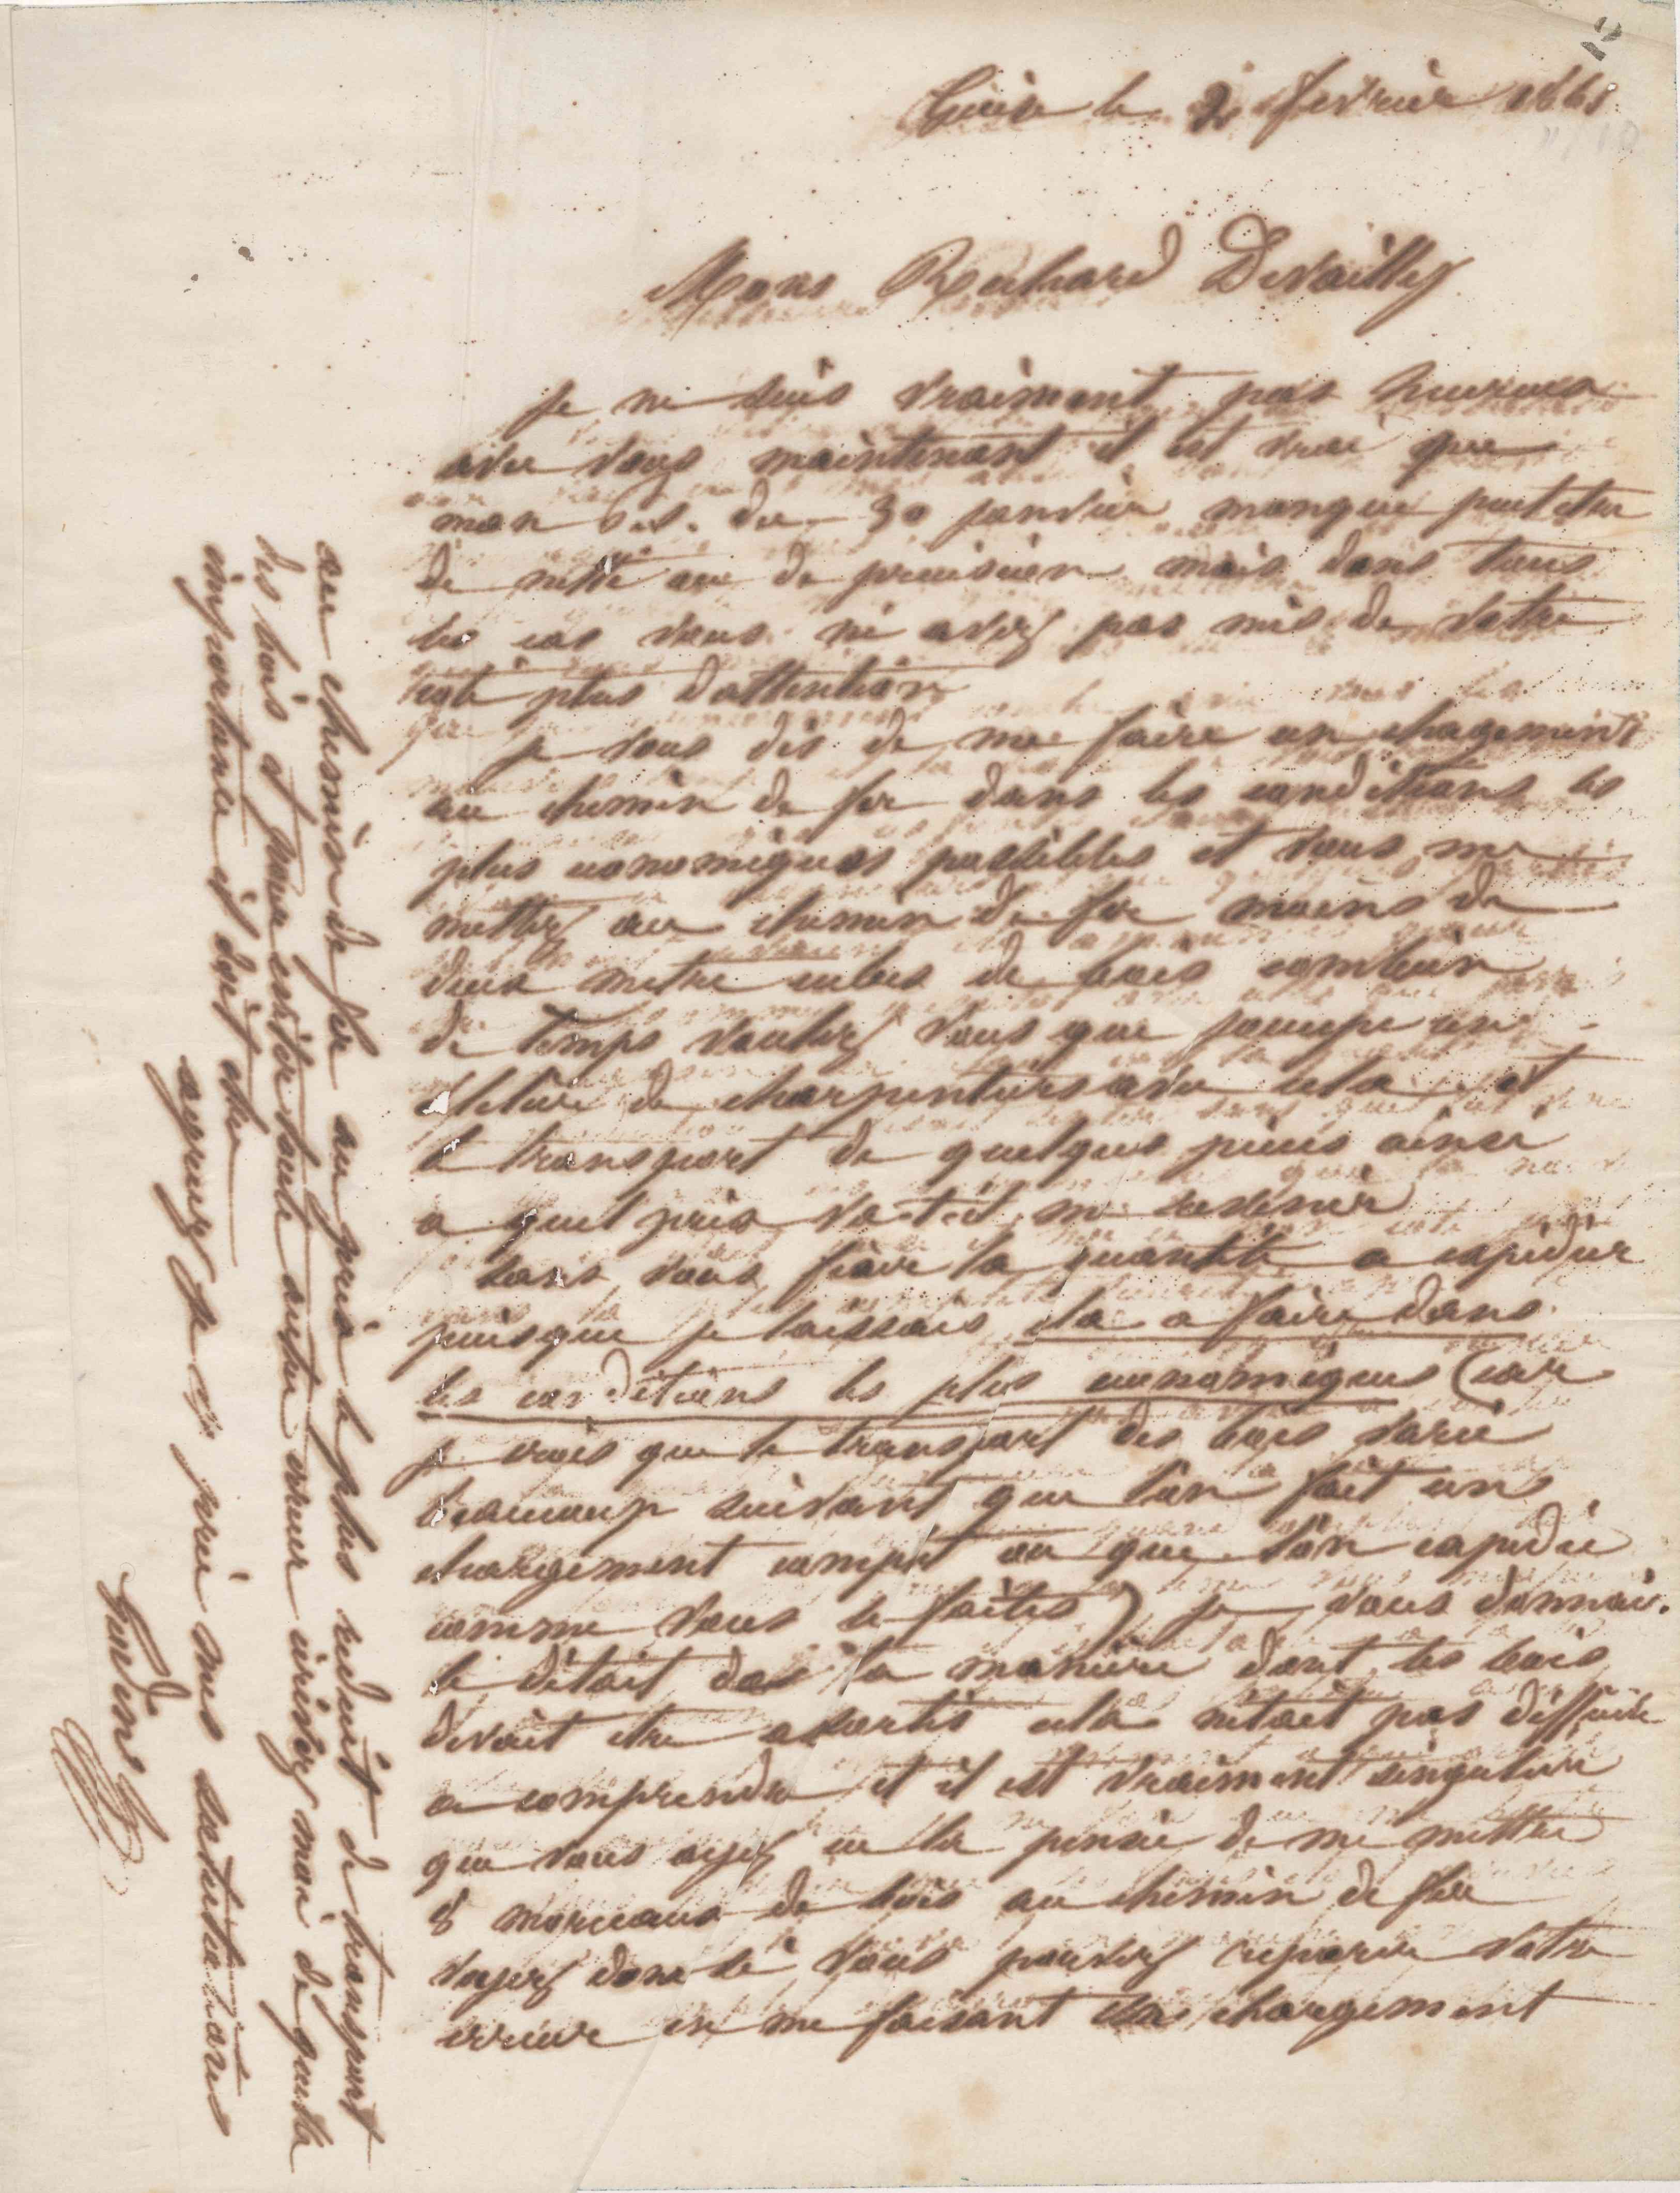 Guise le 2 février 1861
Mons Rouhard Devailly
je ne suis vraiment pas heureux
avec vous maintenant il est vrai que
mon du 30 janvier manque peut etre
de netteté ou de précision mais dans tous
les cas vous ni avez pas mis de votre
coté plus dattention
je vous dis de me faire un chagement
au chemin de fer dans les conditions les
plus economiques possibles et vous me
mettez au chemin de fer moins de
deux metre cubes de bois combien
de temps voulez vous que jocupe un
attelier de charpentiers avec cela et
le transport de quelques pieces ainsi
a quel prix va-t-il me revenir
sans vous fixer la quantité a expédier
puisque je laissais cela a faire dans
les conditions les plus economiques (car
je crois que le transport des bois varie
beaucoup suivant que lon fait un
chargement complet ou que lon expédie
comme vous le faites) je vous donnais
le détail de la maniere dont les bois
devait etre assortis cela nétait pas difficile
a comprendre et il est vraiment singulier
que vous ayez eu la pensée de me mettre
8 morceaux de bois au chemin de fer
voyez donc si vous pouvez reparer votre
erreur en me faisant un chargement
au chemin de fer au prix le plus reduit de transport
des bois et pour eviter toute autre erreur ecrivez moi de quelle
importance il doit etre
agreez je vous prie mes salutations
Godin